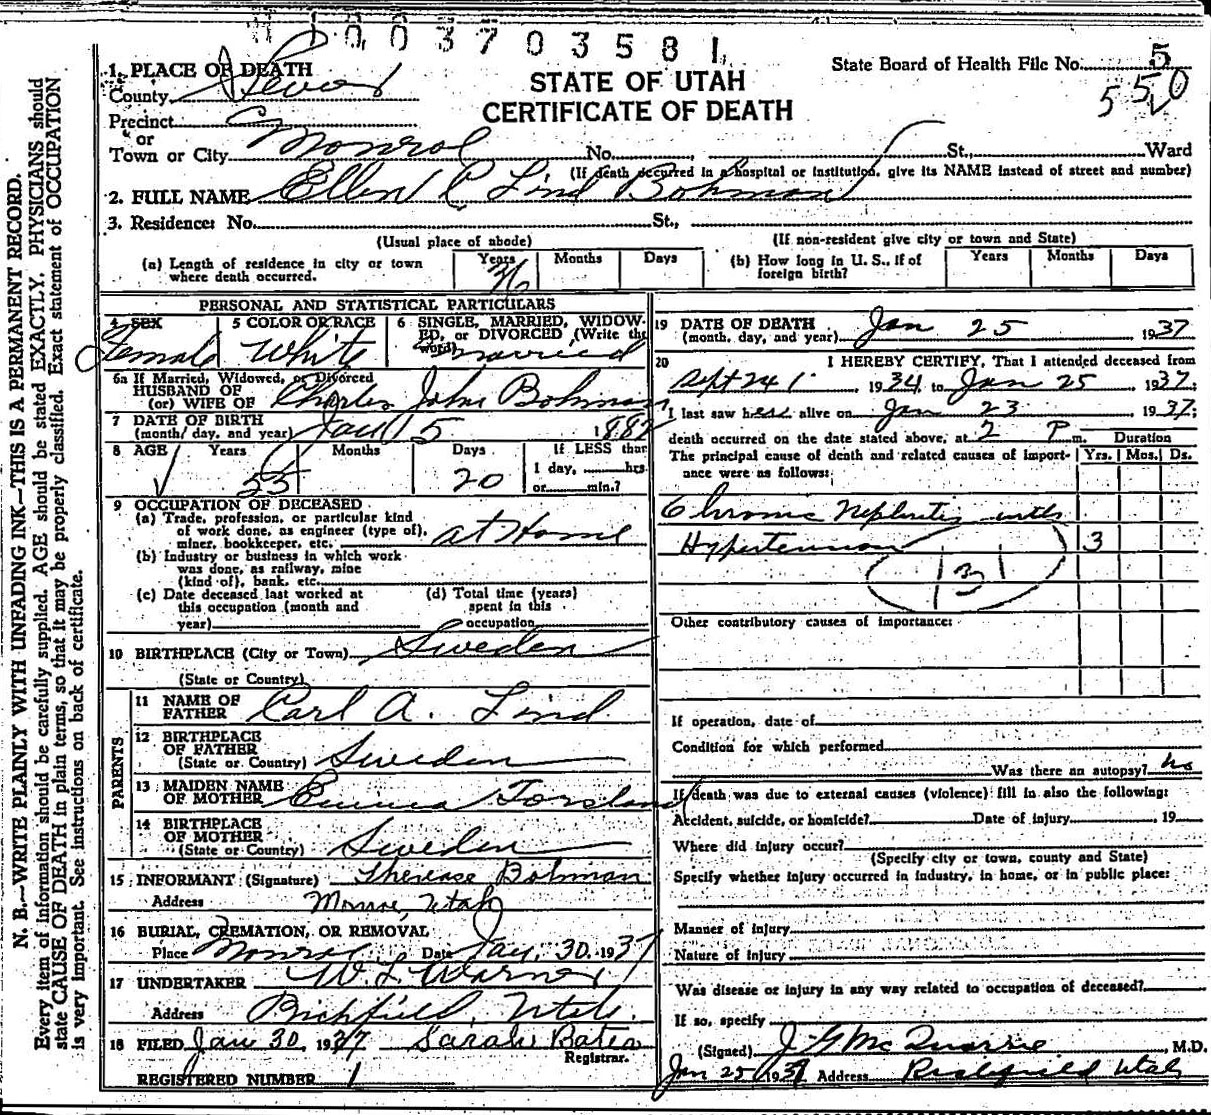 1003703581
1. PLACE OF DEATH
County Sevier
Precinct
or
Town or City Monroe No. St., Ward
STATE OF UTAH
CERTIFICATE OF DEATH
State Board of Health File No. 5
550
(If death occurred in a hospital or institution, give its NAME instead of street and number)
2. FULL NAME Ellen C Lind Bohman
3. Residence: No. St.,
(Usual place of abode) (If non-resident give city or town and State)
(a) Length of residence in city or town where death occurred. Years 36 Months Days
(b) How long in U. S., if of foreign birth? Years Months Days
PERSONAL AND STATISTICAL PARTICULARS
4 SEX Female
5 COLOR OR RACE White
6 SINGLE, MARRIED, WIDOWED, or DIVORCED (Write the word) married
6a If Married, Widowed, or Divorced
HUSBAND OF
(or) WIFE OF Charles John Bohman
7 DATE OF BIRTH
(month, day, and year) Jan 5 1882
8 AGE Years 55 Months Days 20 If LESS than
1 day, hrs.
or min.?
9 OCCUPATION OF DECEASED
(a) Trade, profession, or particular kind
of work done, as engineer (type of),
miner, bookkeeper, etc. at Home
(b) Industry or business in which work
was done, as railway, mine
(kind of), bank, etc.
(c) Date deceased last worked at
this occupation (month and
year)
(d) Total time (years)
spent in this
occupation
10 BIRTHPLACE (City or Town) Sweden
(State or Country)
PARENTS
11 NAME OF
FATHER Carl A. Lind
12 BIRTHPLACE
OF FATHER
(State or Country) Sweden
13 MAIDEN NAME
OF MOTHER Emma Forsland
14 BIRTHPLACE
OF MOTHER
(State or Country) Sweden
15 INFORMANT (Signature) Therease Bohman
Address Monroe, Utah
16 BURIAL, CREMATION, OR REMOVAL
Place Monroe Date Jan. 30, 1937
17 UNDERTAKER W. L. Warner
Address Richfield, Utah.
18 FILED Jan 30, 1937 Sarah Bates
Registrar.
REGISTERED NUMBER 1
19 DATE OF DEATH
(month, day, and year) Jan 25 1937
20 I HEREBY CERTIFY, That I attended deceased from
Sept 24, 1934 to Jan 25, 1937;
I last saw her alive on Jan 23 1937;
death occurred on the date stated above, at 2 P m. Duration
The principal cause of death and related causes of importance were as follows: Yrs. Mos. Ds.
Chronic Nephritis with
Hypertension 3
131
Other contributory causes of importance:
If operation, date of
Condition for which performed
Was there an autopsy? no
If death was due to external causes (violence) fill in also the following:
Accident, suicide, or homicide? Date of injury , 19
Where did injury occur?
(Specify city or town, county and State)
Specify whether injury occurred in industry, in home, or in public place:
Manner of injury
Nature of injury
Was disease or injury in any way related to occupation of deceased?
If so, specify
(Signed) J. G. McQuarrie, M.D.
Jan 25 1937 Address Richfield Utah
N. B.—WRITE PLAINLY WITH UNFADING INK—THIS IS A PERMANENT RECORD.
Every item of information should be carefully supplied. AGE should be stated EXACTLY. PHYSICIANS should
state CAUSE OF DEATH in plain terms, so that it may be properly classified. Exact statement of OCCUPATION
is very important. See instructions on back of certificate.